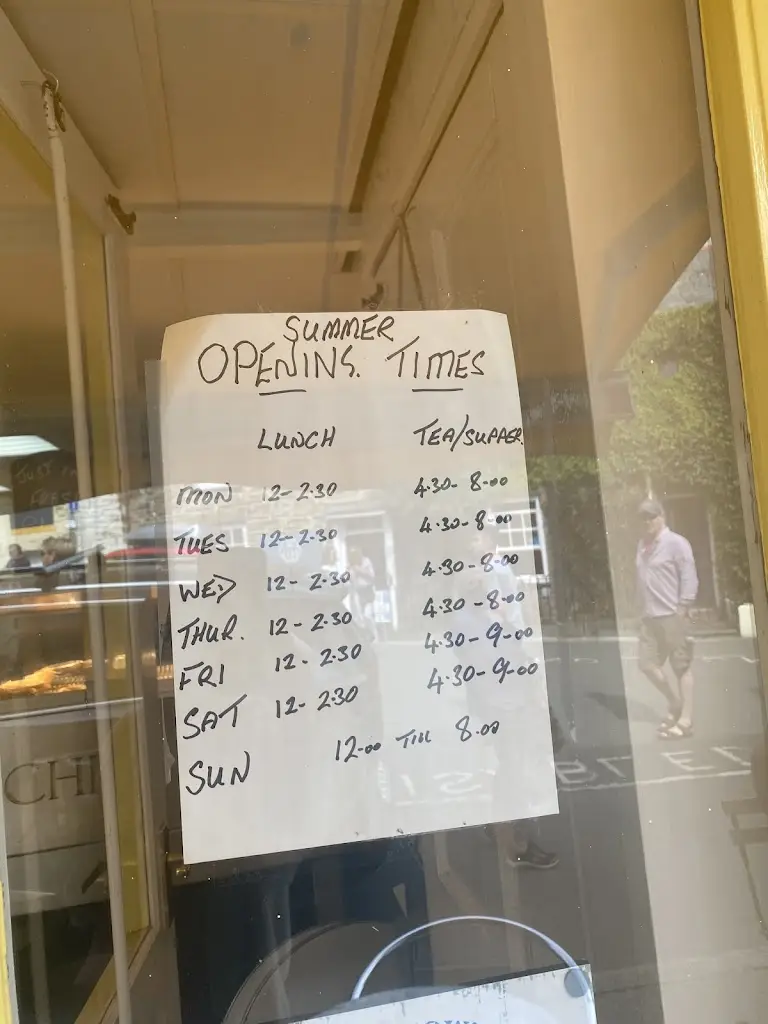 SUMMER
OPENING TIMES
LUNCH TEA/SUPPER
MON 12-2.30 4.30-8.00
TUES 12-2.30 4.30-8.00
WED 12-2.30 4.30-8.00
THUR. 12-2.30 4.30-8.00
FRI 12-2.30 4.30-9.00
SAT 12-2.30 4.30-9.00
SUN 12.00 TILL 8.00
CHI